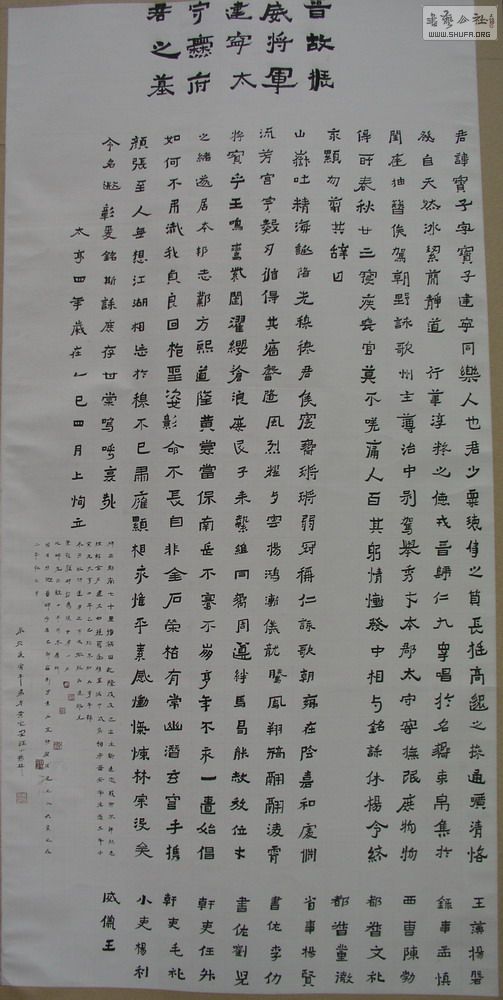 晉故振
威將軍
建寧太
守爨府
君之墓
君諱寶子字寶子建寧同樂人也君少稟瓌偉之質長挺高邈之操通曠清恪
發自天然冰絜簡靜道 行葦淳粹之德戎晉歸仁九皋唱於名嚮束帛集於
閨庭抽簪俟駕朝野詠歌州主簿治中別駕舉秀才本郡太守寧撫氓庶物物
得所春秋廿三寢疾喪官莫不嗟痛人百其躬情慟發中相與銘誄休揚令終
永顯勿翦其辭曰
山嶽吐精海誕陼光穆穆君侯震嚮鏘鏘弱冠稱仁詠歌朝鄉在陰嘉和處淵
流芳宮宇數仞循得其墻馨隨風烈耀與雲揚鴻漸儀龍騰鳳翔矯翮翮凌霄
將賓乎王鳴鸞紫闥濯纓滄浪庶民子來縶維同嚮周遵絆馬曷能赦放位才
之緒遂居本邦志鄴方熙道隆黃裳當保南岳不騫不崩享年不永一匱始倡
如何不弔殲我貞良回抱聖姿影命不長自非金石榮枯有常幽潛玄宮手攜
顏張至人無想江湖相忘於穆不已肅雍顯相永惟平素感慟愾慷林宗沒矣
令名遐彰爰銘斯誄庶存甘棠嗚呼哀哉
太亨四年歲在乙巳四月上恂立
主簿楊磐
錄事孟慎
西曹陳勃
都督文禮
都督董徹
省事楊賢
書佐李仂
書佐劉兒
幹吏任升
幹吏毛禮
小吏楊利
威儀王
書藝公社
WWW.SHUFA.ORG